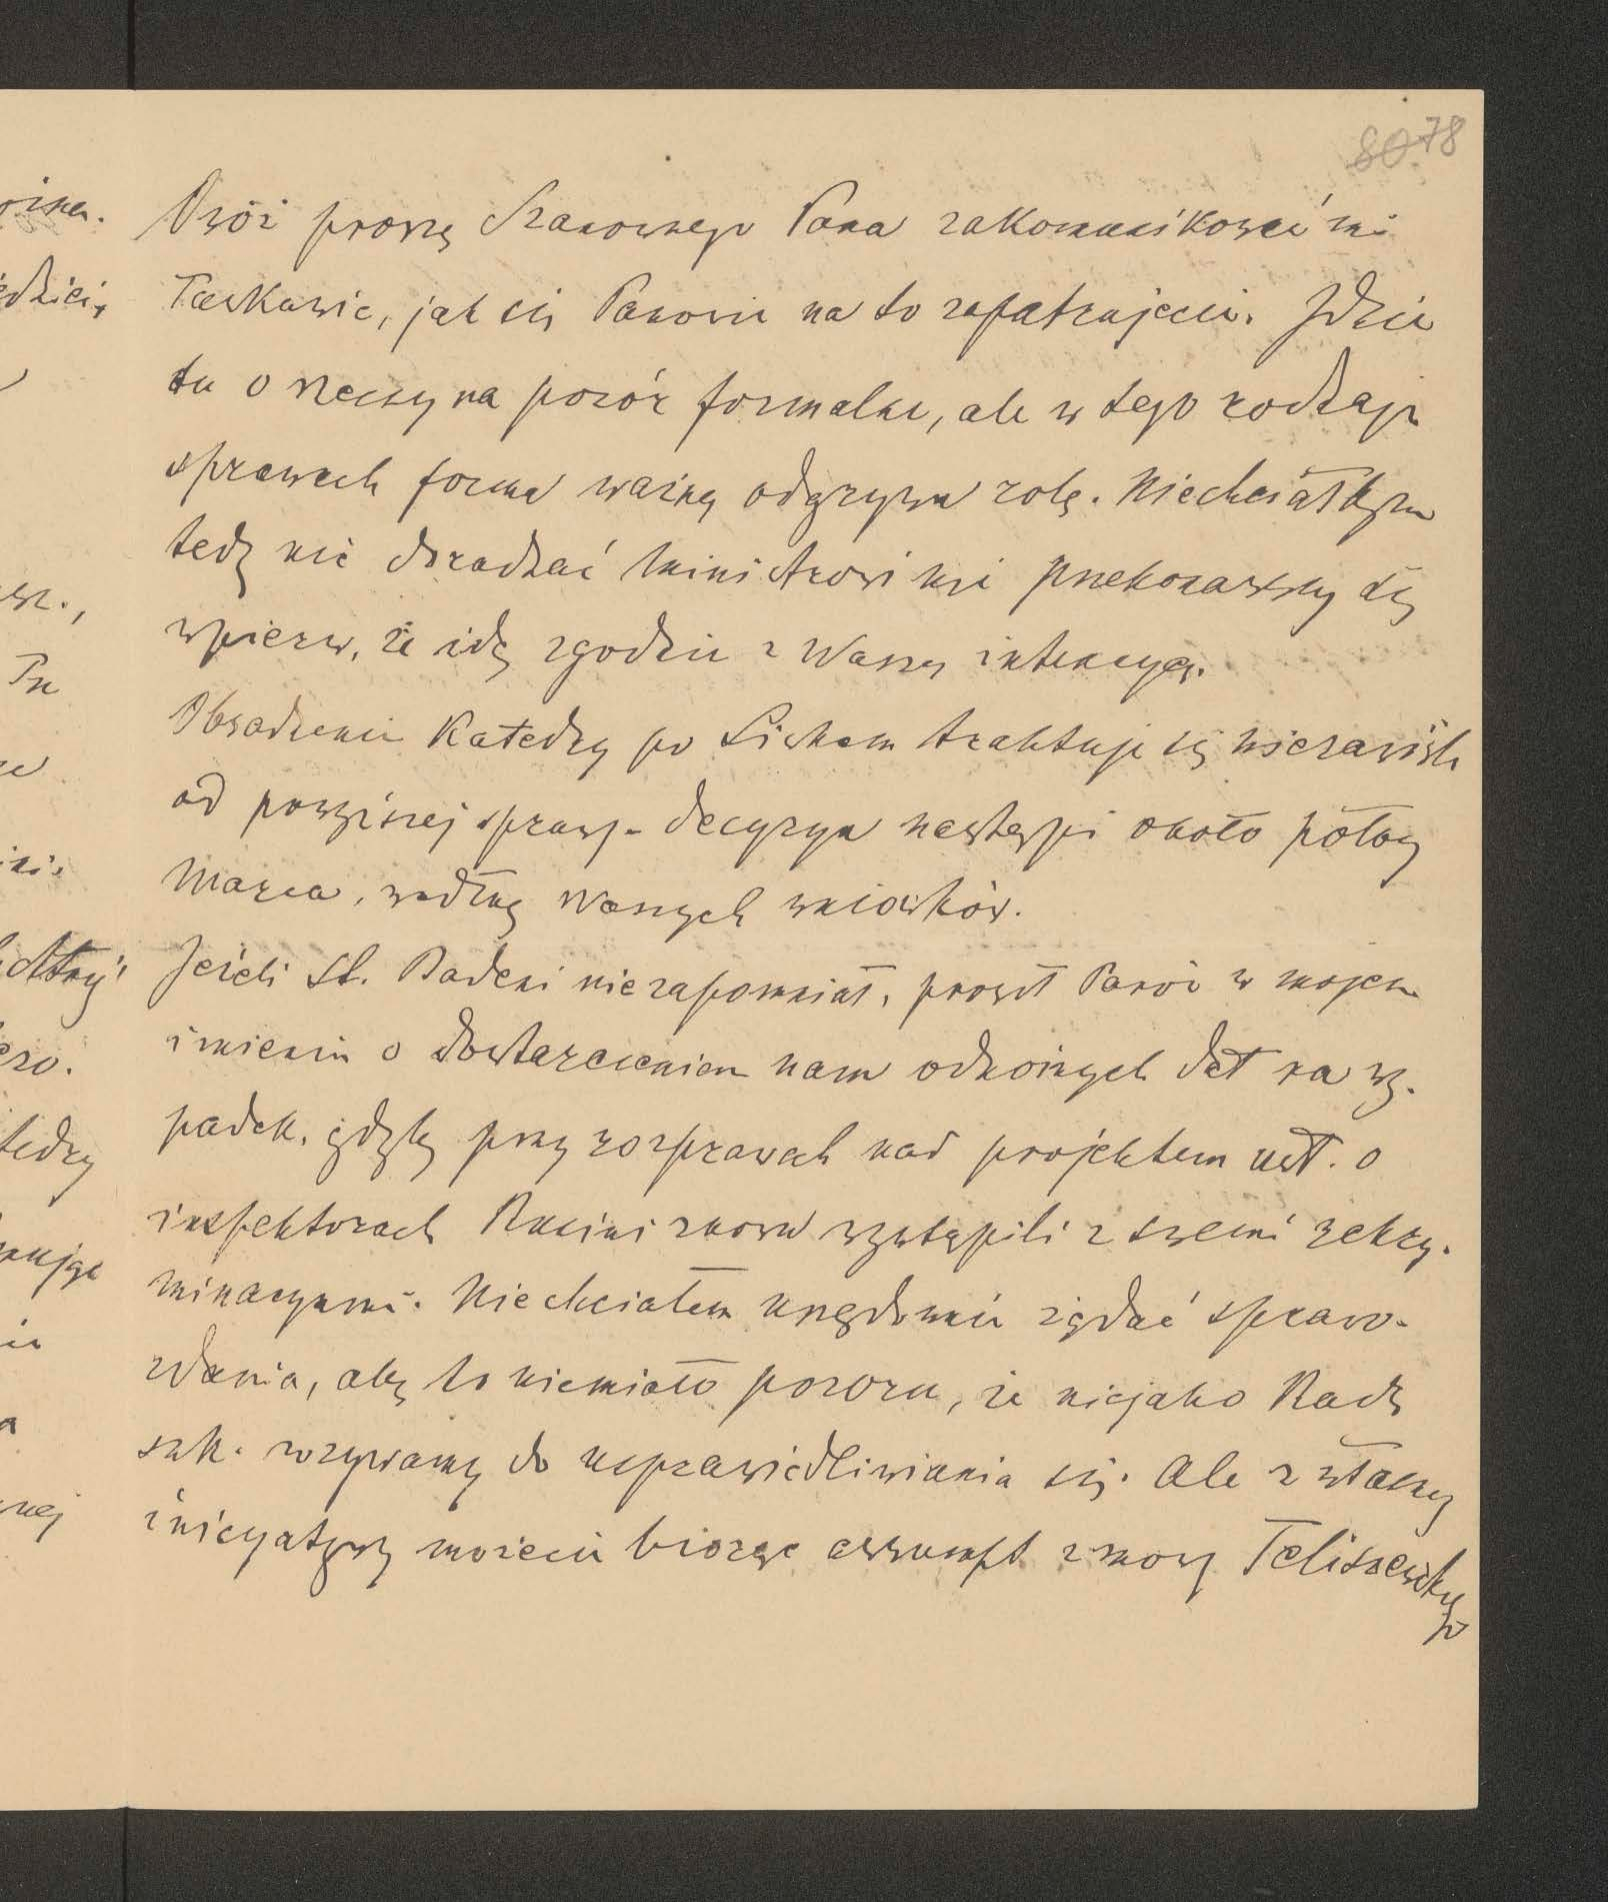 80 78
Otóż proszę Szanownego Pana zakomunikować mi
łaskawie, jak się Panowie na to zapatrujecie. Idzie
tu o rzeczy na pozór formalne, ale w tego rodzaju
sprawach forma ważną odgrywa rolę. Niechciałbym
tedy nic doradzać ministrowi nie przekonawszy się
wpierw, że idę zgodnie z Waszą intencyą.
Obsadzenie Katedry po Liskem traktuje się niezawiśle
od powyższej sprawy. Decyzya nastąpi około połowy
Marca, według Waszych wniosków.
Jeżeli St. Badeni nie zapomniał, prosił Panów w mojem
imieniu o dostarczenie nam odnośnych dat na wy-
padek, gdyby przy rozprawach nad projektem ust. o
inspektorach Rusini znowu wystąpili z swemi rekry-
minacyami. Niechciałem urzędownie żądać sprawo-
zdania, aby to niemiało pozoru, że niejako Radę
szk. wzywamy do usprawiedliwiania się. Ale z własnej
inicyatywy możecie biorąc assumpt z mowy Teliszewskiego
oisna.
edzieć,
Pn
ero.
tedry
mują
nie
a
nej